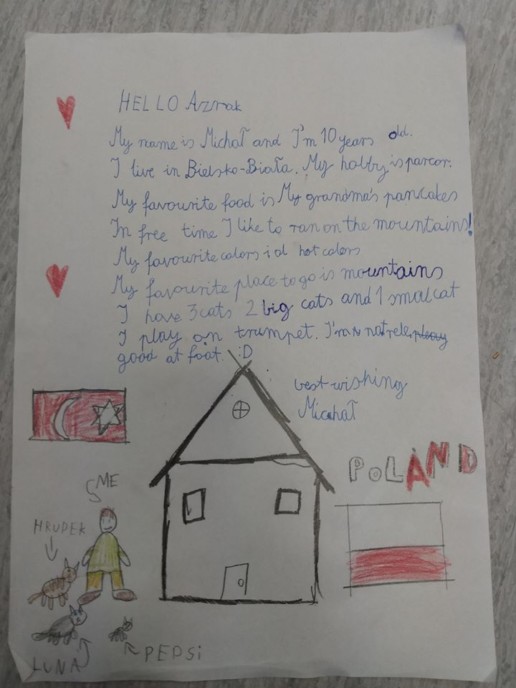 HELLO Azrak
My name is Michał and I'm 10 years old.
I live in Bielsko-Biała. My hobby is parcor.
My favourite food is My grandma's pancakes
In free time I like to ran on the mountains!
My favourite colors is hot colors
My favourite place to go is mountains
I have 3 cats 2 big cats and 1 smal cat
I play on trumpet. I'm not
good at foot. :D
best wishing
Michał
POLAND
ME
HRUPEK
LUNA
PEPSi